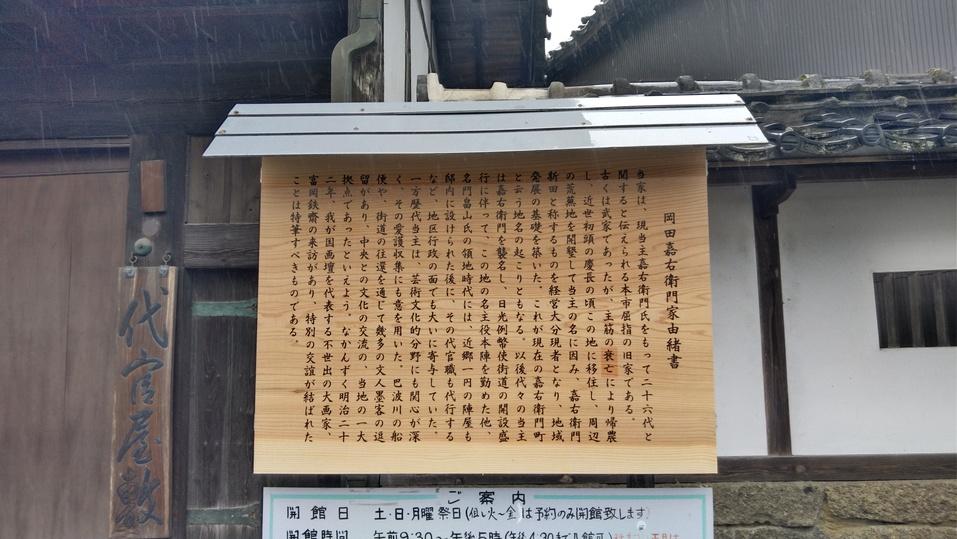 岡田嘉右衛門家由緒書
当家は、現当主嘉右衛門氏をもって二十六代と
関すると伝えられる本市屈指の旧家である。
古くは武家であったが、主筋の衰亡により帰農
し、近世初頭の慶長の頃この地に移住し、周辺
の荒蕪地を開墾して当主の名に因み、嘉右衛門
新田と称するもの経営大分現者となり、地域
発展の基礎を築いた。これが現在の嘉右衛門町
と云う地名の起こりともなる。以後代々の当主
は嘉右衛門を襲名し、日光例幣使街道の開設盛
行に伴って、この地の名主役本陣を勤めた他、
名門畠山氏の領地時代には、近郷一円の陣屋も
邸内に設けられた後に、その代官職も代行する
など、地区行政の面でも大いに寄与していた。
一方歴代当主は、芸術文化的分野にも関心が深
く、その愛護収集にも意を用いた。巴波川の船
便や、街道の往還を通じて幾多の文人墨客の逗
留があり、中央との文化の交流の、当地の一大
拠点であったといえよう。なかんずく明治二十
二年、我が国画壇を代表する不世出の大画家、
富岡鉄斎の来訪があり、特別の交誼が結ばれた
ことは特筆すべきものである。
代官屋敷
ご案内
開館日 土・日・月曜祭日(但し火〜金は予約のみ開館致します)
開館時間 午前9:30〜午後5時(午後4:30まで入館可)